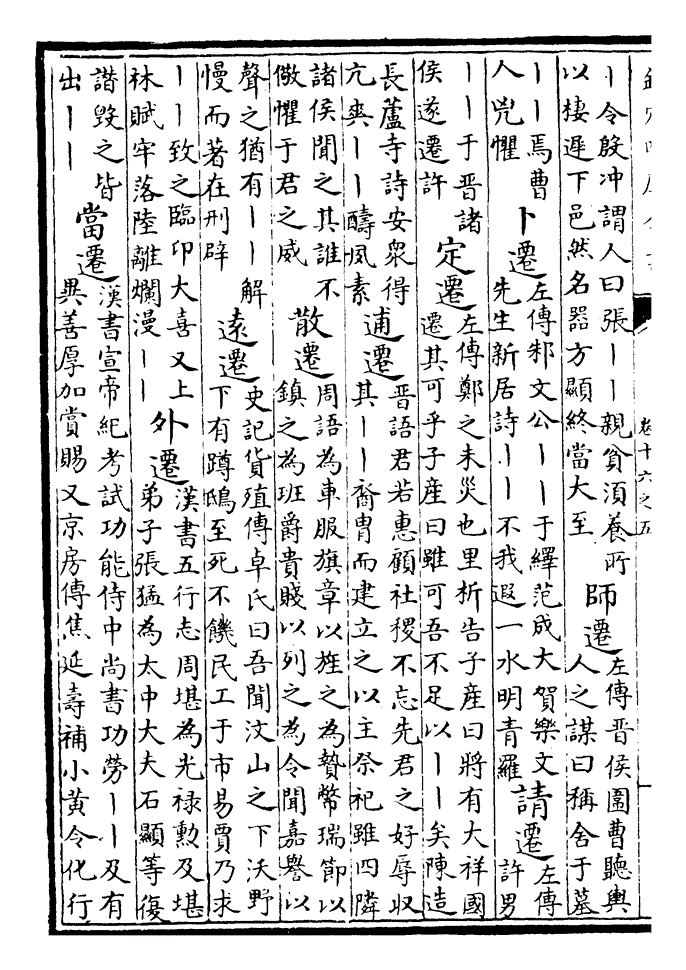 卷十六之五
丨令殷沖謂人曰張丨丨親貧須養所
以棲遲下邑然名器方顯終當大至
師遷
左傳晉侯圍曹聽輿
人之謀曰稱舍于墓
丨丨焉曹
人兇懼
卜遷
左傳邾文公丨丨于繹范成大賀樂文
先生新居詩丨丨不我遐一水明青羅
請遷
左傳
許男
丨丨于晉諸
侯遂遷許
定遷
左傳鄭之未災也里析告子產曰將有大祥國
遷其可乎子產曰雖可吾不足以丨丨矣陳造
長蘆寺詩安衆得
亢爽丨丨醻夙素
逋遷
晉語君若惠顧社稷不忘先君之好辱收
其丨丨裔胄而建立之以主祭祀雖四隣
諸侯聞之其誰不
儆懼于君之威
散遷
周語為車服旗章以旌之為贄幣瑞節以
鎮之為班爵貴賤以列之為令聞嘉譽以
聲之猶有丨丨解
慢而著在刑辟
遠遷
史記貨殖傳卓氏曰吾聞汶山之下沃野
下有蹲鴟至死不饑民工于市易賈乃求
丨丨致之臨卭大喜又上
林賦牢落陸離爛漫丨丨
外遷
漢書五行志周堪為光禄勲及堪
弟子張猛為太中大夫石顯等復
譖毁之皆
出丨丨
當遷
漢書宣帝紀考試功能侍中尚書功勞丨丨及有
異善厚加賞賜又京房傳焦延壽補小黄令化行